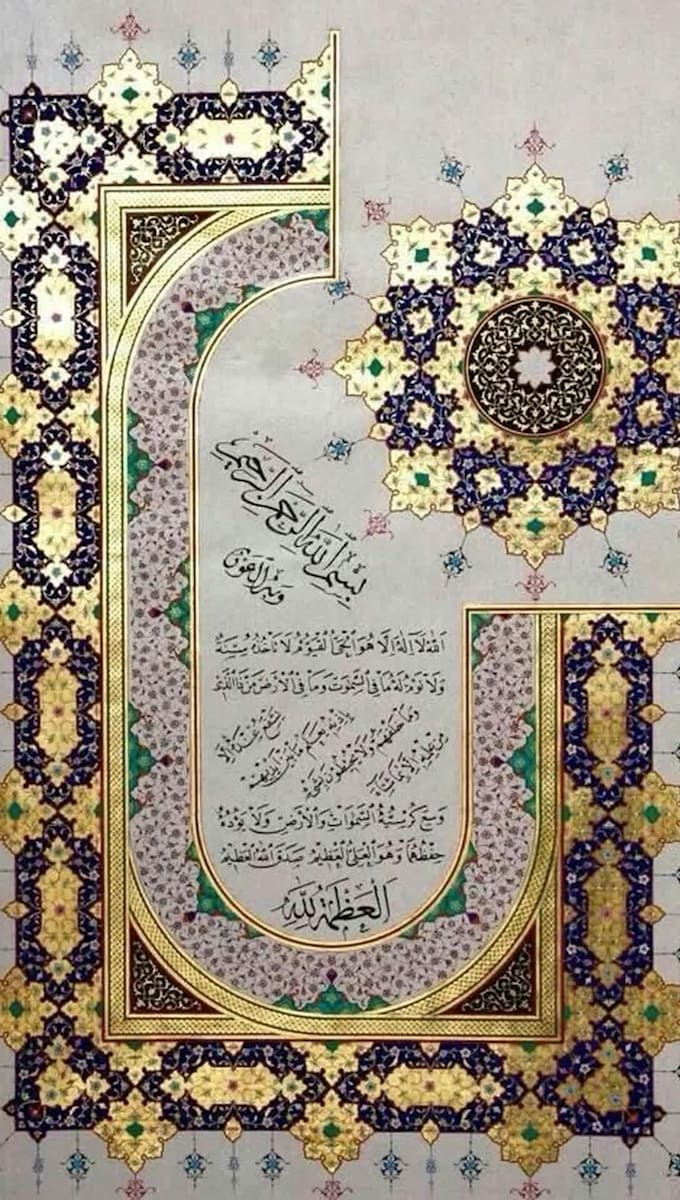 بِسْمِ اللهِ الرَّحْمٰنِ الرَّحِيْمِ
وبه العون
اَللّٰهُ لَآ اِلٰهَ اِلَّا هُوَ الْحَيُّ الْقَيُّومُ لَا تَأْخُذُهُ سِنَةٌ
وَلَا نَوْمٌ لَهُ مَا فِي السَّمٰوَاتِ وَمَا فِي الْاَرْضِ مَنْ ذَا الَّذِي
يَشْفَعُ عِنْدَهُ اِلَّا
بِاِذْنِهِ يَعْلَمُ مَا بَيْنَ اَيْدِيهِمْ
وَمَا خَلْفَهُمْ وَلَا يُحِيطُونَ بِشَيْءٍ
مِنْ عِلْمِهِ اِلَّا بِمَا شَاءَ
وَسِعَ كُرْسِيُّهُ السَّمٰوَاتِ وَالْاَرْضَ وَلَا يَؤُدُهُ
حِفْظُهُمَا وَهُوَ الْعَلِيُّ الْعَظِيمُ صَدَقَ اللهُ الْعَظِيمُ
اَلْعَظَمَةُ لِلّٰهِ